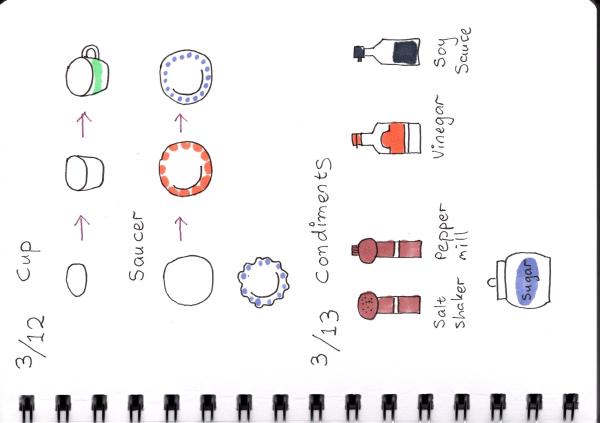 3/12 Cup
Saucer
3/13 Condiments
Salt
shaker
Pepper
mill
Vinegar
Soy
Sauce
Sugar